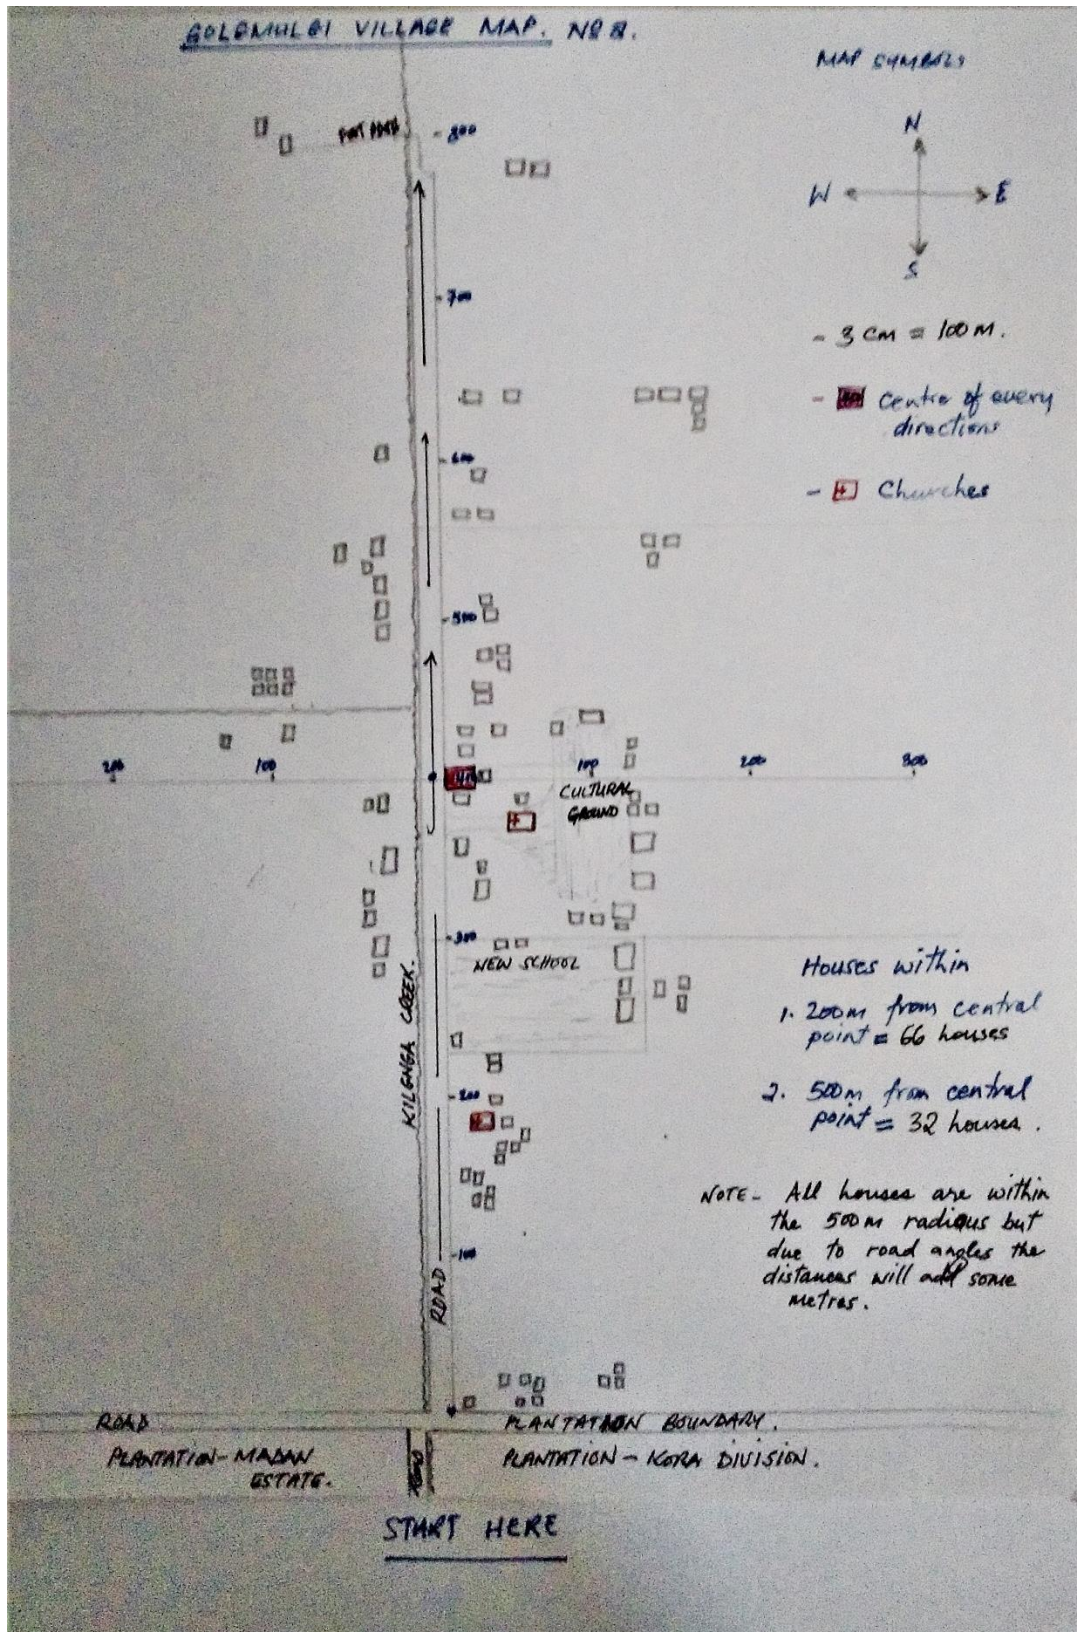 GOLGMULGI VILLAGE MAP. NO 2.
MAP SYMBOLS
N
W E
S
FOOT PATH
800
700
- 3 cm = 100 m.
- Centre of every
directions
600
- Churches
500
200 100 400 100 200 300
CULTURAL
GROUND
300
NEW SCHOOL
KILENGA CREEK.
Houses within
1. 200m from central
point = 66 houses
200
2. 500m from central
point = 32 houses.
NOTE- All houses are within
the 500m radious but
due to road angles the
distances will add some
metres.
100
ROAD
ROAD
PLANTATION BOUNDARY.
PLANTATION - MADAN
ESTATE.
ROAD
PLANTATION - KORA DIVISION.
START HERE